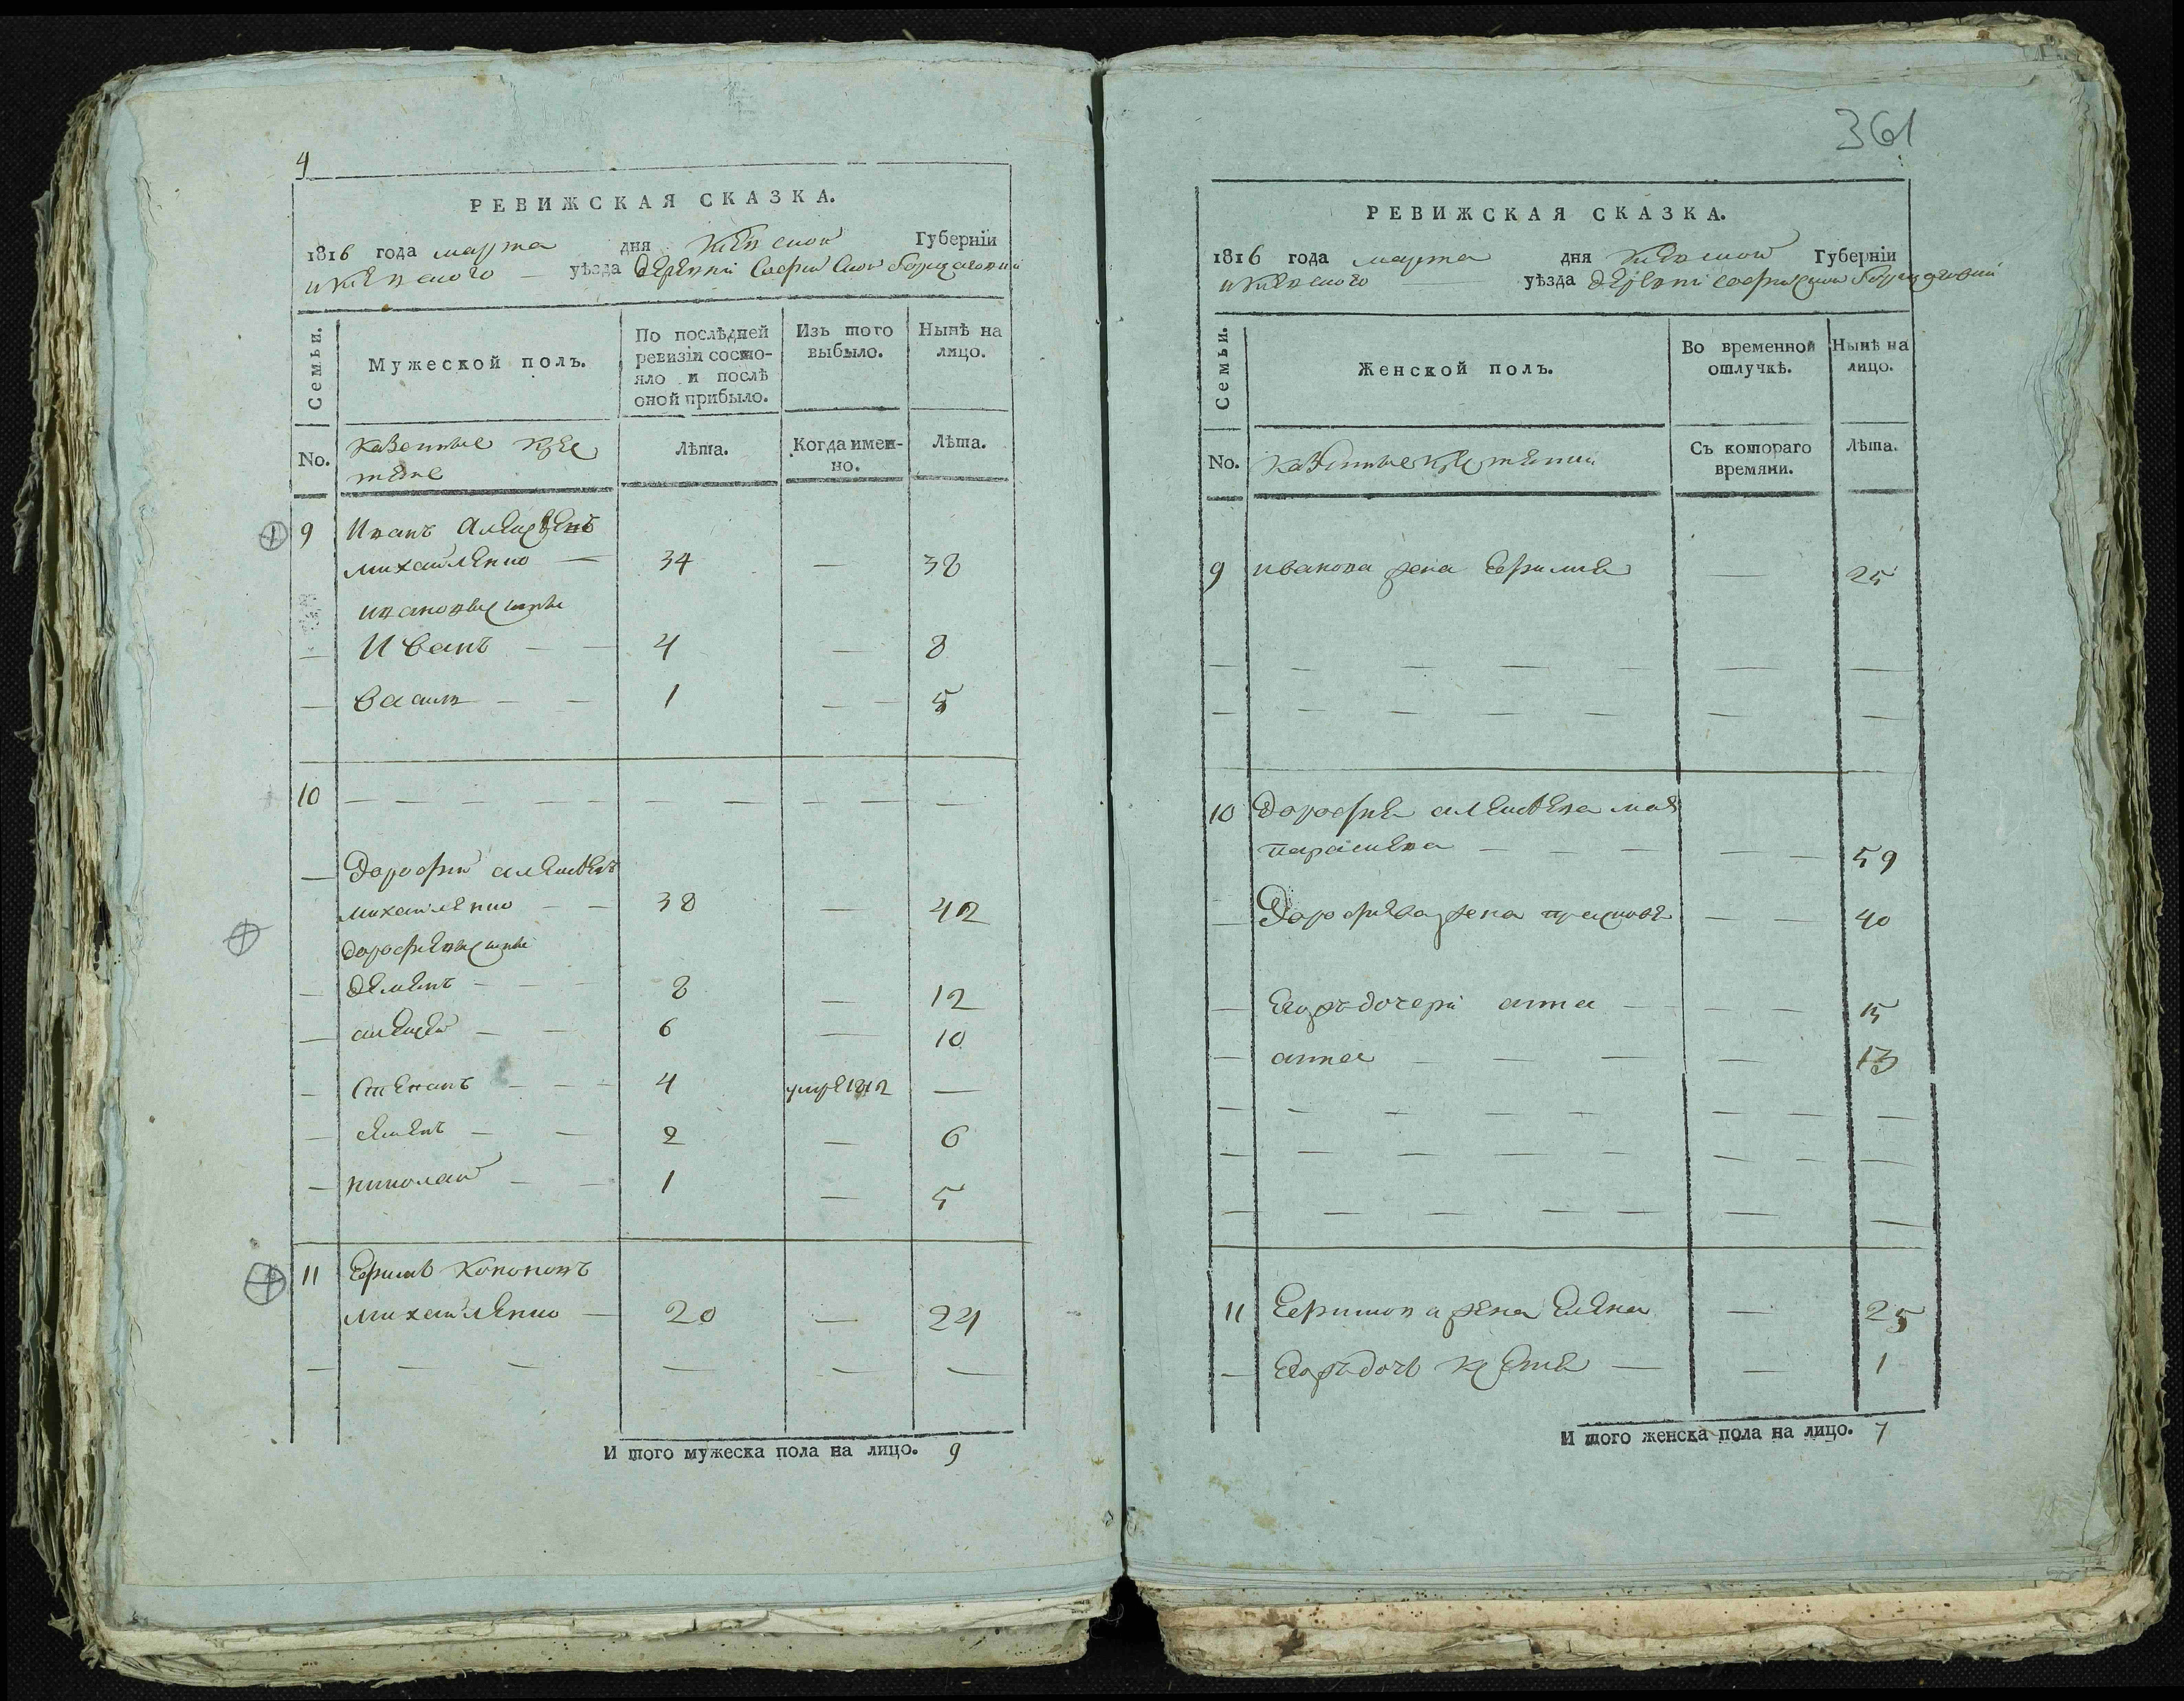 4
РЕВИЖСКАЯ СКАЗКА.
1816 года марта дня Киевской Губернїи
и Киевского уѣзда деревни Софийской Борщаговки
Семьи.
Мужеской полъ.
По послѣдней ревизїи состояло и послѣ оной прибыло.
Изъ того выбыло.
Нынѣ на лицо.
No.
казенные крестяне
Лѣта.
Когда именно.
Лѣта.
9 Иванъ Алексѣевъ
михайленко — 34 — 38
ивановы сыны
— Иванъ — — 4 — 8
— василь — — 1 — — 5
10 — — — — — — — — — —
— Дорофий алексѣевъ
михайленко — — 38 — 42
дорофиевы сыны
— демьянъ — — — 8 — 12
— алексей — — 6 — 10
— Степанъ — — — 4 умре 1812 —
— семенъ — — 2 — 6
— николай — — 1 — 5
11 Ефимъ Кононовъ
михайленко — 20 — 24
— — — — — —
И того мужеска пола на лицо. 9
361
РЕВИЖСКАЯ СКАЗКА.
1816 года марта дня Киевской Губернїи
и Киевского уѣзда деревни софийской борщаговки
Семьи.
Женской полъ.
Во временной отлучкѣ.
Нынѣ на лицо.
No.
казенные крестянки
Съ котораго времяни.
Лѣта.
9 иванова жена Ефимия — 25
— — — — — — —
— — — — — — —
10 Дорофия алексѣева мать
параскева — — — — — 59
— Дорофиева жена — — 40
— Егожъ дочери анна — — — 15
— анна — — — — 13
— — — — — — — —
— — — — — — — —
— — — — — — —
11 Ефимова жена Елена — 25
— Егожъ дочь — — 1
И того женска пола на лицо. 7